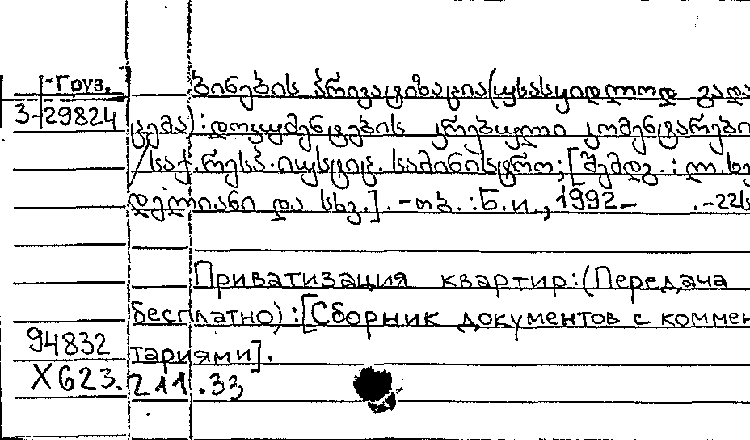 -Груз.
3-29824
ბინების პრივატიზაცია(უსასყიდლოდ გადა
ცემა):დოკუმენტების კრებული კომენტარები
/საქ.რესპ.იუსტიც.სამინისტრო;[შემდგ.:ლ.ხე
დელიანი და სხვ.].-თბ.:ნ.ი.,1992- .-22ს
Приватизация квартир:(Передача
бесплатно):[Сборник документов с коммен
тариями].
94832
X623.211.33